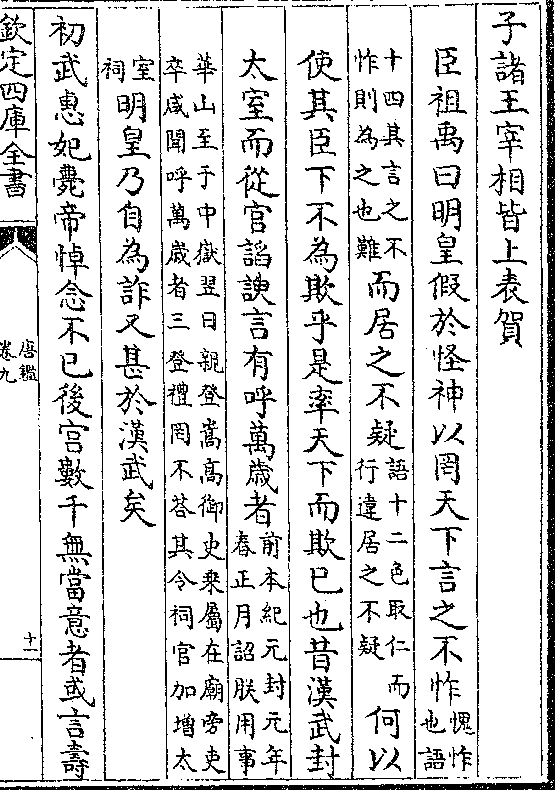 子諸王宰相皆上表賀
臣祖禹曰明皇假於怪神以罔天下言之不怍愧怍也語
十四其言之不怍則為之也難而居之不疑語十二色取仁而行違居之不疑何以
使其臣下不為欺乎是率天下而欺已也昔漢武封
太室而從官諂諛言有呼萬歲者前本紀元封元年春正月詔朕用事
華山至于中嶽翌日親登嵩高御史乗屬在廟旁吏卒咸聞呼萬歲者三登禮罔不荅其令祠官加増太
室祠明皇乃自為詐又甚於漢武矣
初武惠妃薨帝悼念不已後宫數千無當意者或言壽
欽定四庫全書
唐鑑
卷九
十一